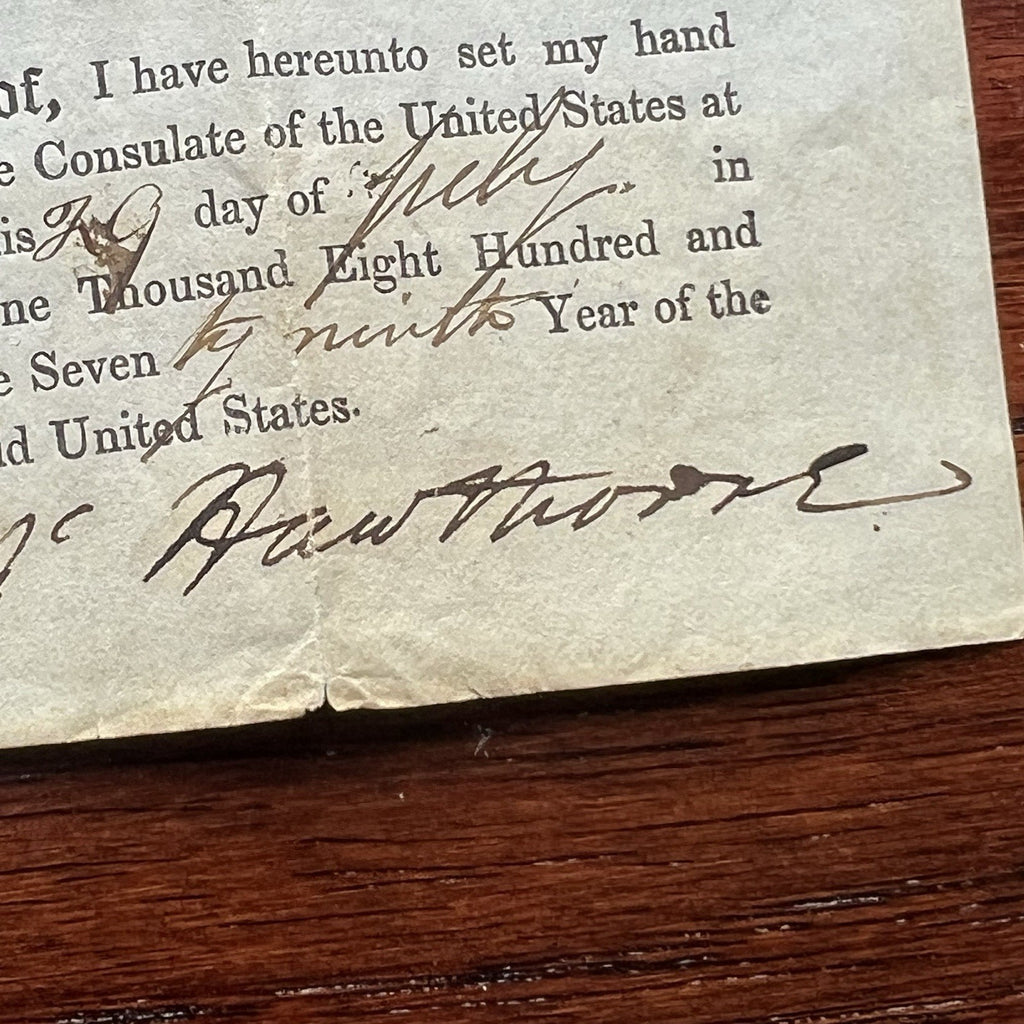 of, I have hereunto set my hand
e Consulate of the United States at
is 29 day of July. in
ne Thousand Eight Hundred and
e Seven ty ninth Year of the
d United States.
Hawthorne